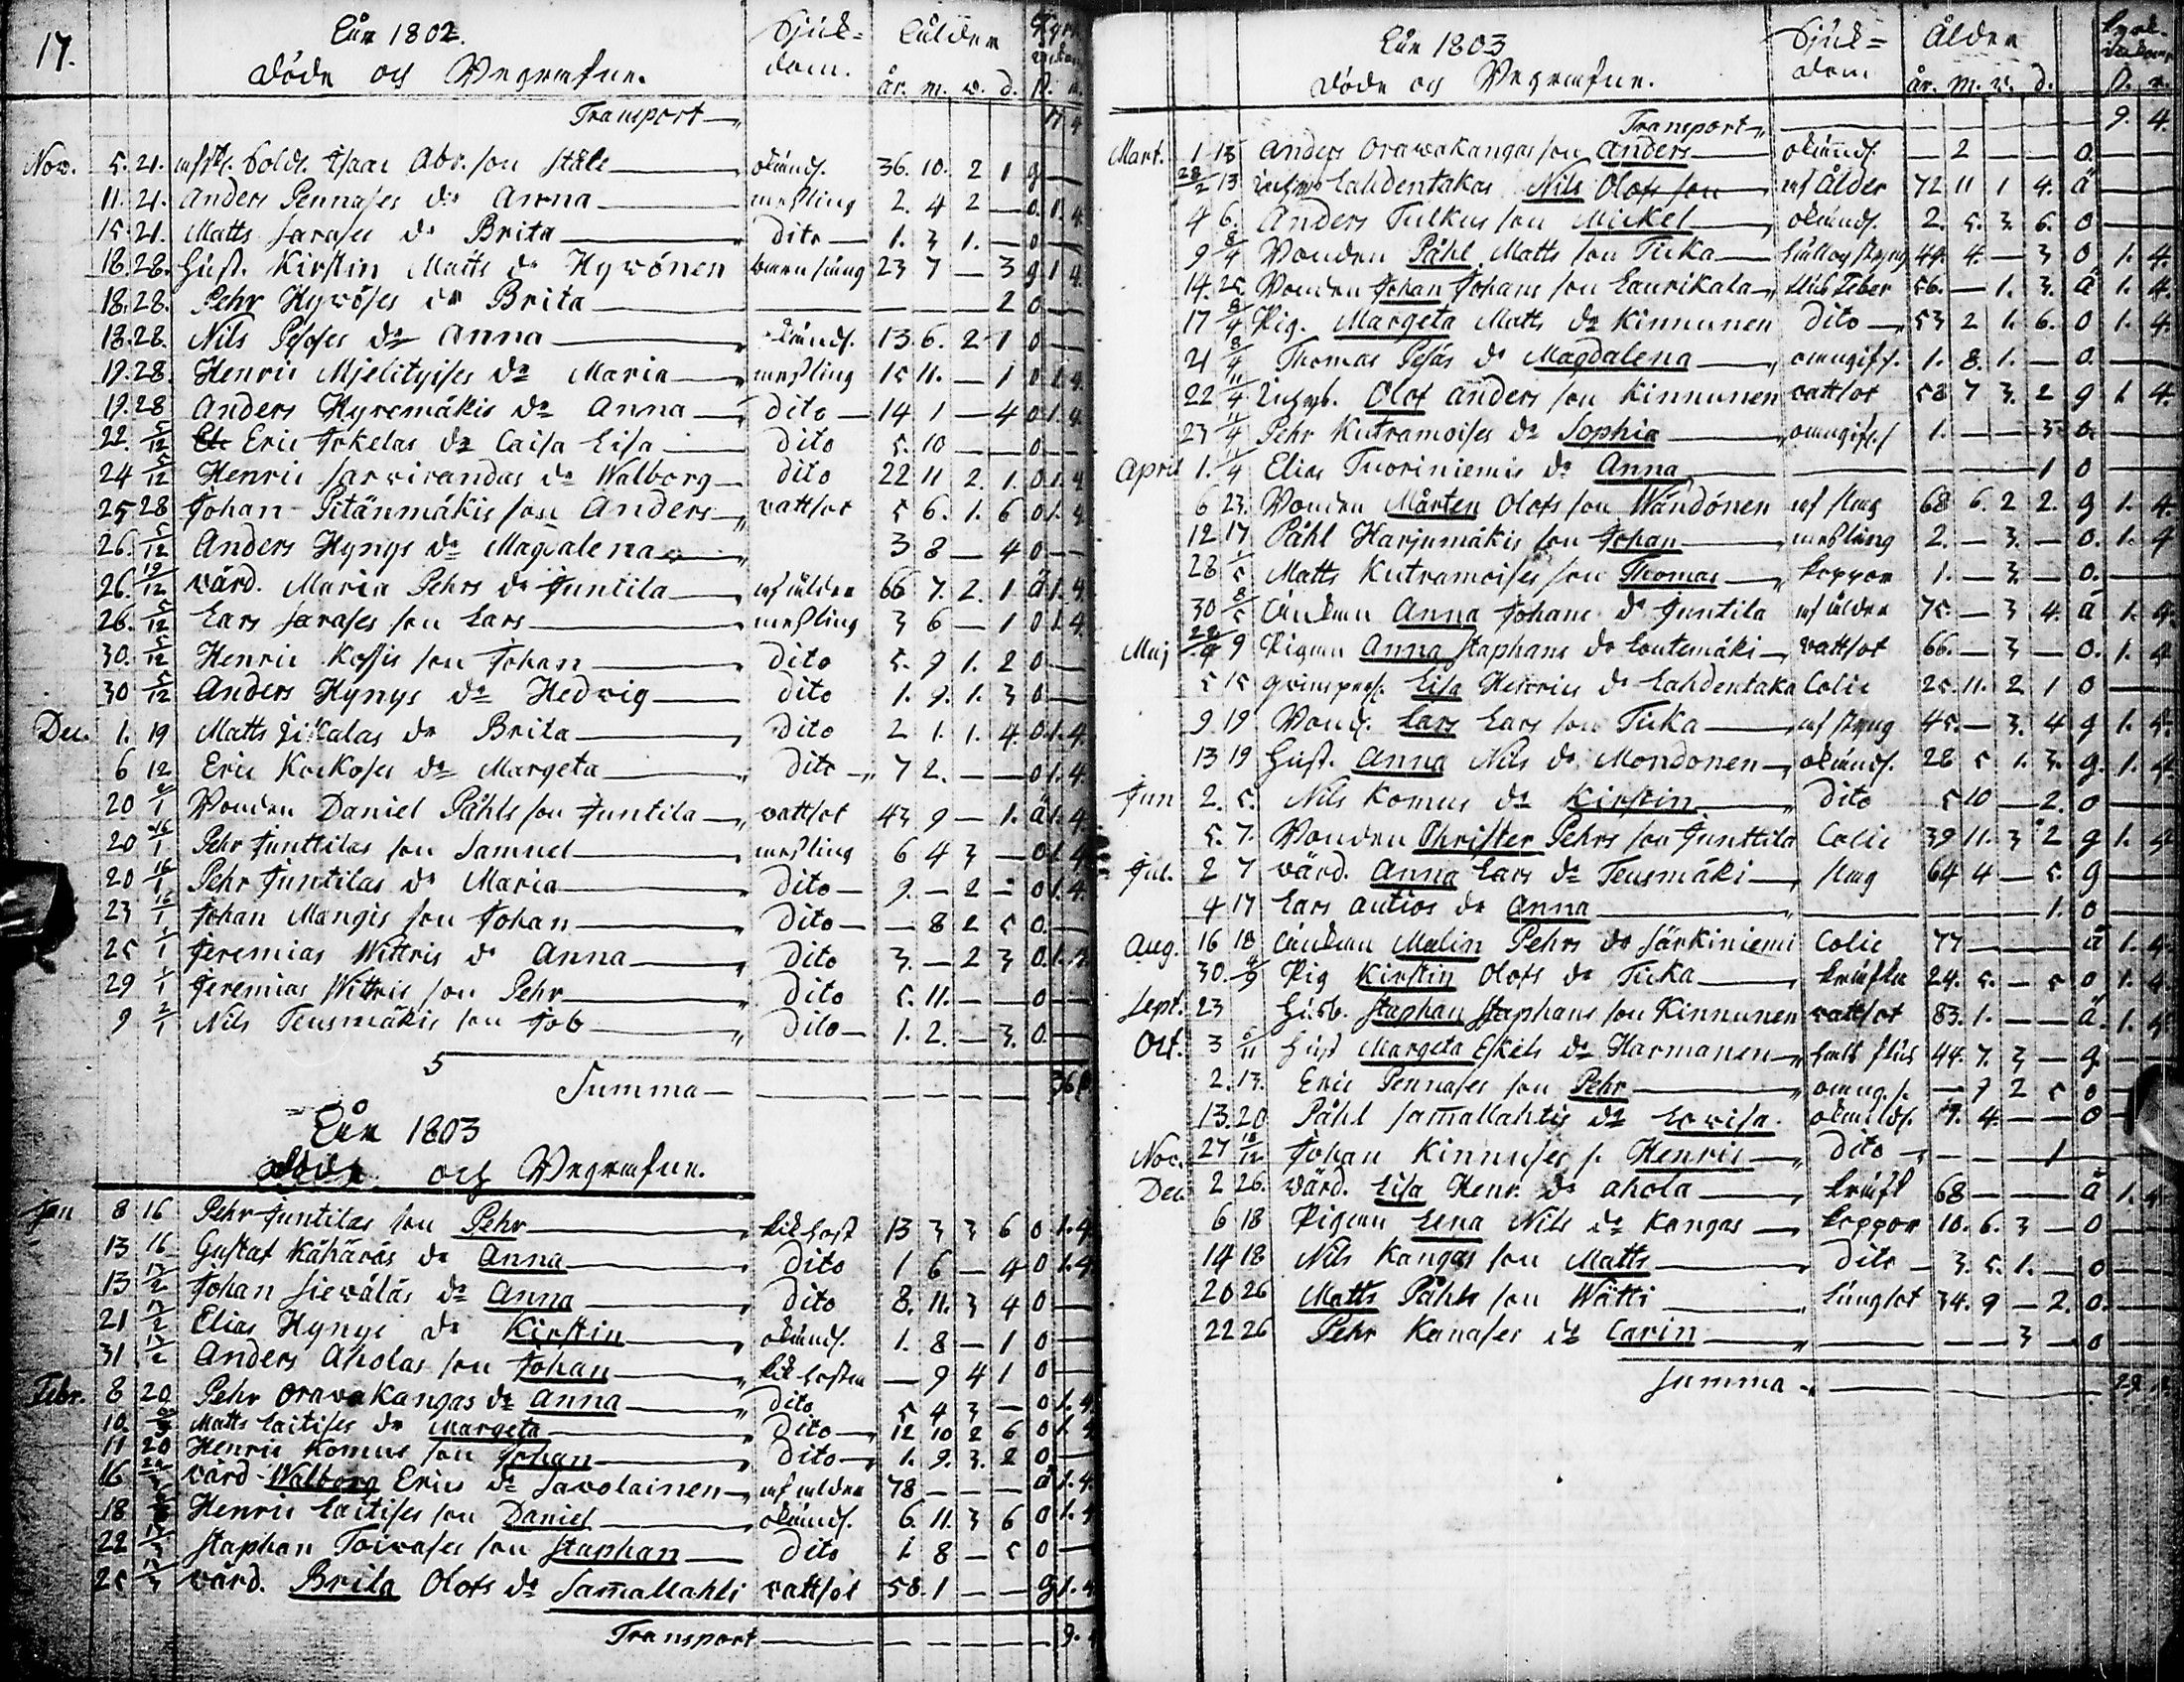 17.
Åhr 1802.
Döde och Begrafne.
Sjuk=
dom.
Ålder
år. m. v. d.
Transport
Nov. 5. 21. Sold. Isaac Abr. son Ståle okänd. 36. 10. 2 1 g
11. 21. Anders Pennases dr Anna meßling 2. 4 2 — o. 1. 4
15 21. Matts Sarases dr Brita dito 1. 3 1. — o
18. 28. Hust. Kirstin Matts dr Hyvönen barnsäng 23 7 — 3 g 1 4.
18. 28. Pehr Hyvöses dr Brita 2 o
18. 28. Nils Pesoses dr Anna okänd. 13. 6. 2 1 o
19. 28. Henric Mjelityises dr Maria meßling 15 11. — 1 o 1. 4.
19. 28 Anders Hyremäkis dr Anna dito 14 1 — 4 o 1. 4.
22. 5/12 Eric Jokelas dr Caisa Lisa dito 5. 10 — — o
24 5/12 Henric Sarvirandas dr Walborg dito 22 11 2. 1. o 1. 4
25 28 Johan Pitänmäkis son Anders vattsot 5 6. 1. 6 o 1. 4
26. 5/12 Anders Hynys dr Magdalena 3 8 — 4 o
26. 19/12 värd. Maria Pehrs dr Juntila af ålder 66 7. 2. 1 ä 1. 4.
26. 5/12 Lars Sarases son Lars meßling 3 6 — 1 o 1. 4.
30. 5/12 Henric Kossis son Johan dito 5. 9 1. 2 o
30 5/12 Anders Hynys dr Hedvig dito 1. 9. 1. 3 o
Dec. 1. 19 Matts dr Brita dito 2 1. 1. 4. o. 1. 4.
6 12 Eric Kockoses dr Margeta dito 7 2. — — o 1. 4.
20 Bonden Daniel Påhls son Juntila vattsot 43 9 — 1. ä 1. 4
20 16/1 Pehr Junttilas son Samuel meßling 6 4 3 — o 1. 4
20 16/1 Pehr Juntilas dr Maria dito 9. — 2 — o 1. 4.
23 16/1 Johan Mangis son Johan dito — 8 2 5 o.
25 1/1 Jeremias Wittris dr Anna dito 3. — 2 3 o. 1.
29 1/1 Jeremias Wittris son Pehr dito 5. 11. — — o
9 2/1 Nils Teusmäkis son Job dito 1. 2. — 3. o.
5
Summa 36
Åhr 1803
Döde och Begrafne.
Jan 8 16 Pehr Juntilas son Pehr kikhost 13 3 3 6 o 1. 4
13 16 Gustaf Kähäräs dr Anna dito 1 6 — 4 o 1. 4
13 13/2 Johan Sieväläs dr Anna dito 8. 11. 3 4 o
21 13/2 Elias Hynys dr Kirstin okänd. 1. 8 — 1 o
31 13/2 Anders Aholas son Johan kikhosta — 9 4 1 o
Febr. 8 20 Pehr Oravakangas dr Anna dito 5 4 3 — o 1. 4.
10. Matts Laitises dr Margeta dito 12 10 2 6 o 1. 4
11 20 Henric Komus son Johan dito 1. 9. 3. 2 o
16 värd. Walborg Erics dr Savolainen af ålder 78 — — — ä 1. 4.
18 Henric Laitises son Daniel okänd. 6. 11. 3 6 o 1. 4
22 13/3 Staphan Toivases son Staphan dito 1 8 — 5 o
25 13/3 värd. Brita Olofs dr Samallahti vattsot 58. 1 — — g 1. 4
Transport 9. 4
Åhr 1803
Döde och Begrafne.
Sjuk=
dom
Ålder
år. m. v. d.
Transport 9. 4.
Mart. 1 13 Anders Oravakangas son Anders okänd. — 2 — — o.
28/2 13 Lahdentakas Nils Olofs son af ålder 72 11 1 4. ä
4 6. Anders Tulkus son Mickel okänd. 2. 5. 3. 6. o
9 8/4 Bonden Påhl Matts son Ticka håll och styng 44. 4. — 3 o 1. 4.
14. 25 Bonden Johan Johans son Laurikala Feber 56. — 1. 3. ä 1. 4.
17 8/4 Pig. Margeta Matts dr Kinnunen dito 53 2 1. 6. o 1. 4.
21 8/4 Thomas Pesäs dr Magdalena onngifs. 1. 8. 1. — o.
22 11/4 Inhysb. Olof Anders son Kinnunen vattsot 58 7 3. 2 g 1 4.
23 11/4 Pehr Kutramoises dr Sophia 1. — — 3. o.
April 1. 11/4 Elias Tuoriniemis dr Anna 1 o
6 23. Bonden Mårten Olofs son Wändönen af slag 68 6. 2 2. g 1. 4.
12 17 Påhl Harjumäkis son Johan meßling 2. — 3. — o. 1. 4
28 1/5 Matts Kutramoises son Thomas koppor 1. — 3. — o.
30 8/5 Änkan Anna Johans dr Juntila af ålder 75. — 3 4. ä 1. 4.
Maj 28/4 9 Pigan Anna Staphans dr Loutemäki vattsot 66. — 3 — o. 1. 4
5 15 qvinspers. Lisa Henrics dr Lahdentaka Colic 25. 11. 2 1 o
9 19 Bond. Lars Lars son Ticka af styng 45. — 3. 4 g 1. 4.
13 19 Hust. Anna Nils dr Mondonen okänd. 28 5 1. 3. g. 1. 4.
Jun 2. 5. Nils Komus dr Kirstin dito 5 10 — 2. o
5. 7. Bonden Christer Pehrs son Junttila Colic 39 11. 3 2 g 1. 4
Jul. 2 7 värd. Anna Lars dr Teusmäki slag 64 4 — 5. g
4 17 Lars Autios dr Anna 1. o
Aug. 16 18 Änkan Malin Pehrs dr Särkiniemi Colic 77 — — — ä 1. 4.
30. 4/9 Pig Kirstin Olofs dr Ticka kräfta 24. 5. — 5 o 1. 4.
Sept. 23 Husb. Staphan Staphans son Kinnunen vattsot 83. 1. — — ä. 1. 4.
Oct. 3 6/11 Hust Margeta Eskels dr Harmanen 44. 7. 3 — g.
2. 13. Eric Pennases son Pehr — 9 2 5 o
13. 20 Påhl Samallahtis dr Lovisa okänd. 7. 4. — — o
Nov. 27 18/12 Johan Kinnuses s. Henric dito — — — 1
Dec. 2 26. värd. Lisa Henr. dr Ahola kräft 68 — — — ä 1. 4
6 18 Pigan Lena Nils dr Kangas koppor 10. 6. 3 — o
14 18 Nils Kangas son Matts dito 3. 5. 1. — o
20 26 Matts Påhls son Wätti lungsot 34. 9 — 2. o.
22 26 Pehr Kanases dr Carin — — 3 — o
Summa